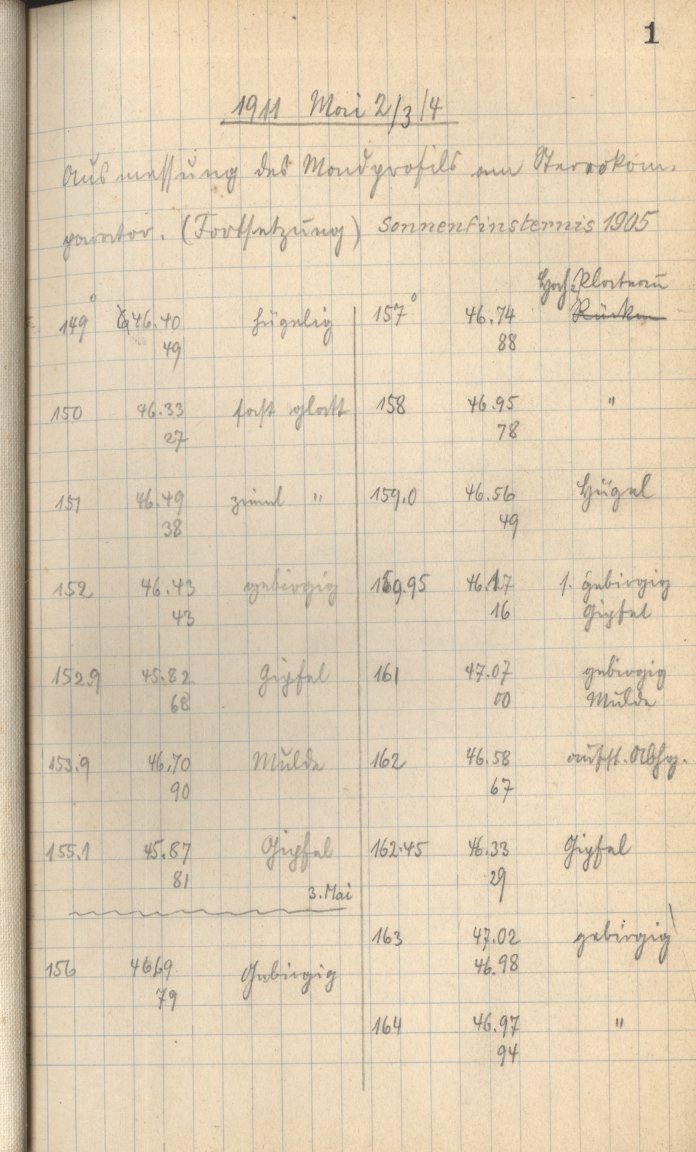 1
1911 Mai 2/3/4
Ausmessung des Mondprofils am Stereokom-
parator. (Fortsetzung) Sonnenfinsternis 1905
149° 46.40 hügelig
49
150 46.33 fast glatt
27
151 46.49 zieml "
38
152 46.43 gebirgig
43
152.9 45.82 Gipfel
68
153.9 46.70 Mulde
90
155.1 45.87 Gipfel
81
3. Mai
156 46.69 Gebirgig
79
Hoch-Plateau
157° 46.74 Rücken
88
158 46.95 "
78
159.0 46.56 Hügel
49
159.95 46.17 s. gebirgig
16 Gipfel
161 47.07 gebirgig
00 Mulde
162 46.58 aufst. Abhg.
67
162.45 46.33 Gipfel
29
163 47.02 gebirgig
46.98
164 46.97 "
94